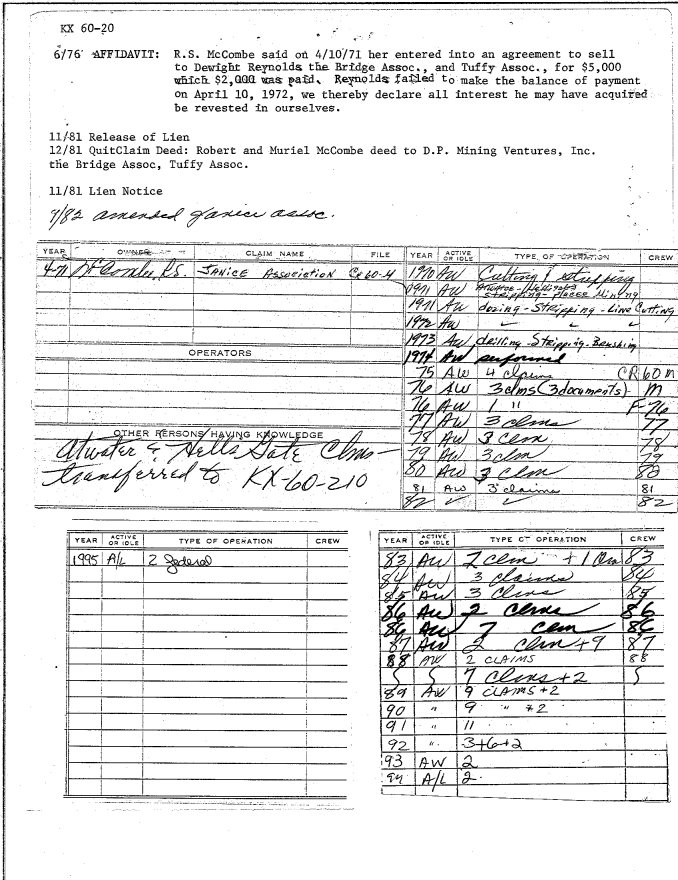 KX 60-20
6/76 AFFIDAVIT: R.S. McCombe said on 4/10/71 her entered into an agreement to sell
to Dewight Reynolds the Bridge Assoc., and Tuffy Assoc., for $5,000
which $2,000 was paid. Reynolds failed to make the balance of payment
on April 10, 1972, we thereby declare all interest he may have acquired
be revested in ourselves.
11/81 Release of Lien
12/81 QuitClaim Deed: Robert and Muriel McCombe deed to D.P. Mining Ventures, Inc.
the Bridge Assoc, Tuffy Assoc.
11/81 Lien Notice
9/82 amended Janice assoc.
YEAR OWNER CLAIM NAME FILE
4-71 McCombe, R.S. JANICE ASSOCIATION CR 60-4
OPERATORS
OTHER PERSONS HAVING KNOWLEDGE
Atwater & Hells Gate Clms-
transferred to KX-60-210
YEAR ACTIVE OR IDLE TYPE OF OPERATION CREW
1970 AW Cutting & stripping
1971 AW stripping - placer Mining
1971 AW dozing - Stripping - Line Cutting
1972 AW ✓ ✓ ✓
1973 AW drilling - Stripping - Brushing
1974 AW performed
75 AW 4 claims CR 60 M
76 AW 3 clms (3 documents) - M
76 AW 1 " F-76
77 AW 3 clms 77
78 AW 3 clm 78
79 AW 3 clm 79
80 AW 3 clm 80
81 AW 3 claims 81
82 ✓ ✓ 82
YEAR ACTIVE OR IDLE TYPE OF OPERATION CREW
1995 A/L 2 federal
YEAR ACTIVE OR IDLE TYPE OF OPERATION CREW
83 AW 2 clm + 1 83
84 AW 3 claims 84
85 AW 3 clms 85
86 AW 2 clms 86
86 AW 7 clm 86
87 AW 2 clm + 9 87
88 AW 2 CLAIMS 88
7 clms + 2
89 AW 9 CLAIMS + 2
90 " 9 " + 2
91 " 11
92 " 3+6+2
93 AW 2
94 A/L 2